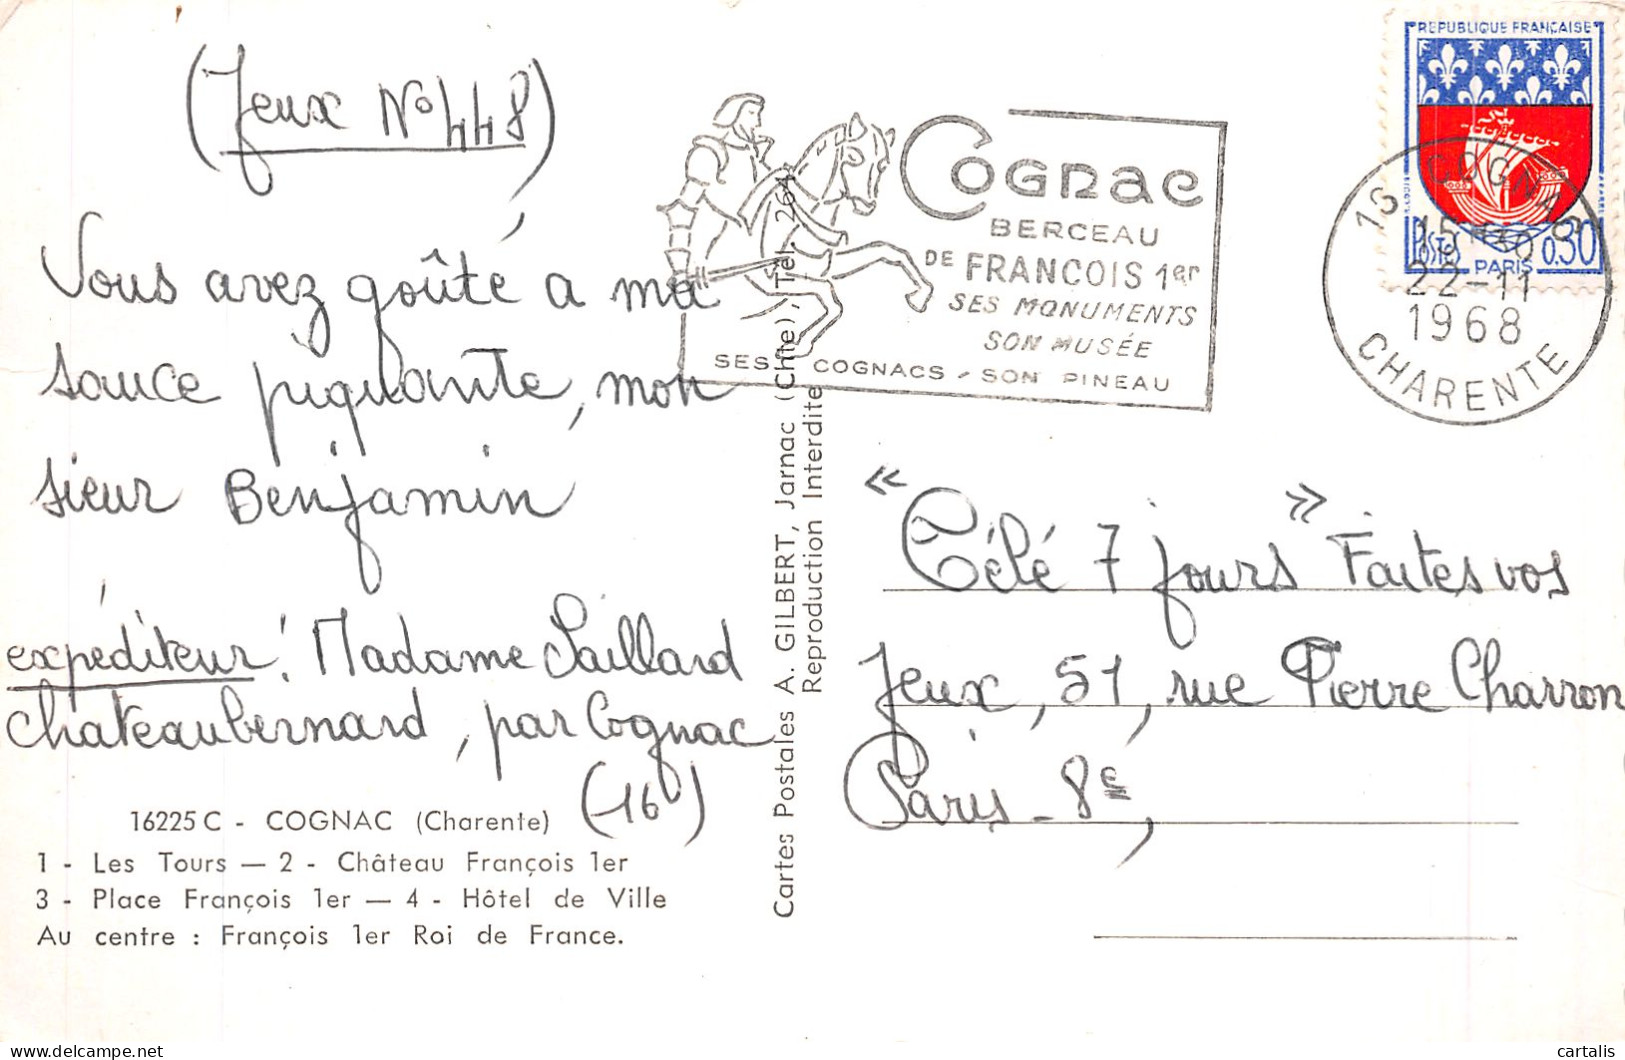 (Jeux No 448)
Vous avez goûté a ma
sauce piquante, mon
sieur Benjamin
expéditeur : Madame Saillard
Chateaubernard, par Cognac
(16)
16225 C - COGNAC (Charente)
1 - Les Tours — 2 - Château François 1er
3 - Place François 1er — 4 - Hôtel de Ville
Au centre : François 1er Roi de France.
Cartes Postales A. GILBERT, Jarnac (Chte). Tél. 264
Reproduction Interdite
COGNAC
BERCEAU
DE FRANCOIS 1er
SES MONUMENTS
SON MUSÉE
SES COGNACS - SON PINEAU
REPUBLIQUE FRANÇAISE
POSTES PARIS 0,30
16 COGNAC
15H30
22-11
1968
CHARENTE
« Télé 7 jours » Faites vos
Jeux, 51, rue Pierre Charron
Paris - 8e,
cartalis